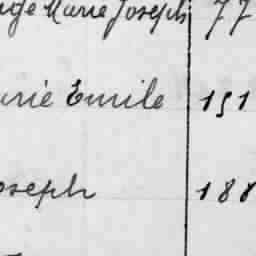 Marie Joseph 77
Emile 151
oseph 188